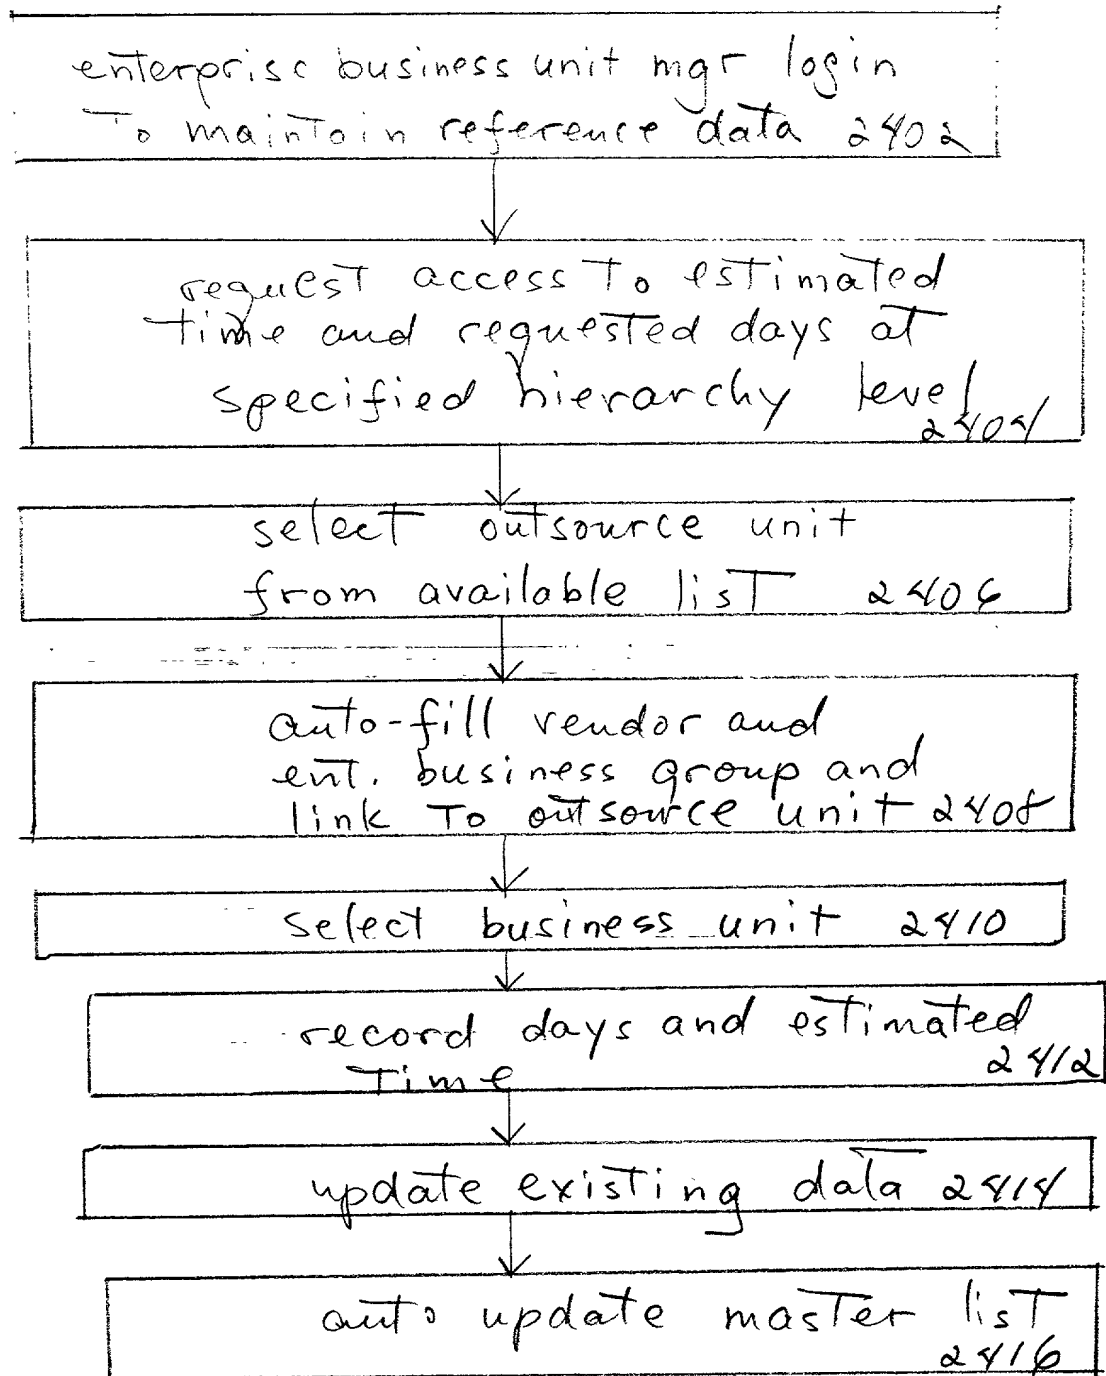 enterprise business unit mgr login
To maintain reference data 2402
request access To estimated
time and requested days at
specified hierarchy level
2404
select outsource unit
from available list 2406
auto-fill vendor and
ent. business group and
link To outsource unit 2408
select business unit 2410
record days and estimated
Time 2412
update existing data 2414
auto update master list
2416